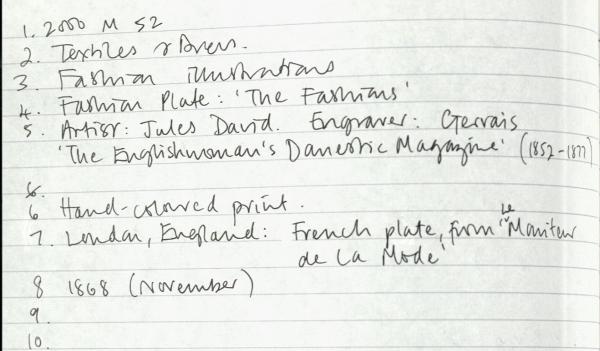 1. 2000 M 52
2. Textiles & Dress.
3. Fashion illustrations
4. Fashion Plate: 'The Fashions'
5. Artist: Jules David. Engraver: Gervais
'The Englishwoman's Domestic Magazine' (1852-1877)
6.
6 Hand-coloured print.
7. London, England: French plate, from 'Le Moniteur
de La Mode'
8 1868 (November)
9.
10.